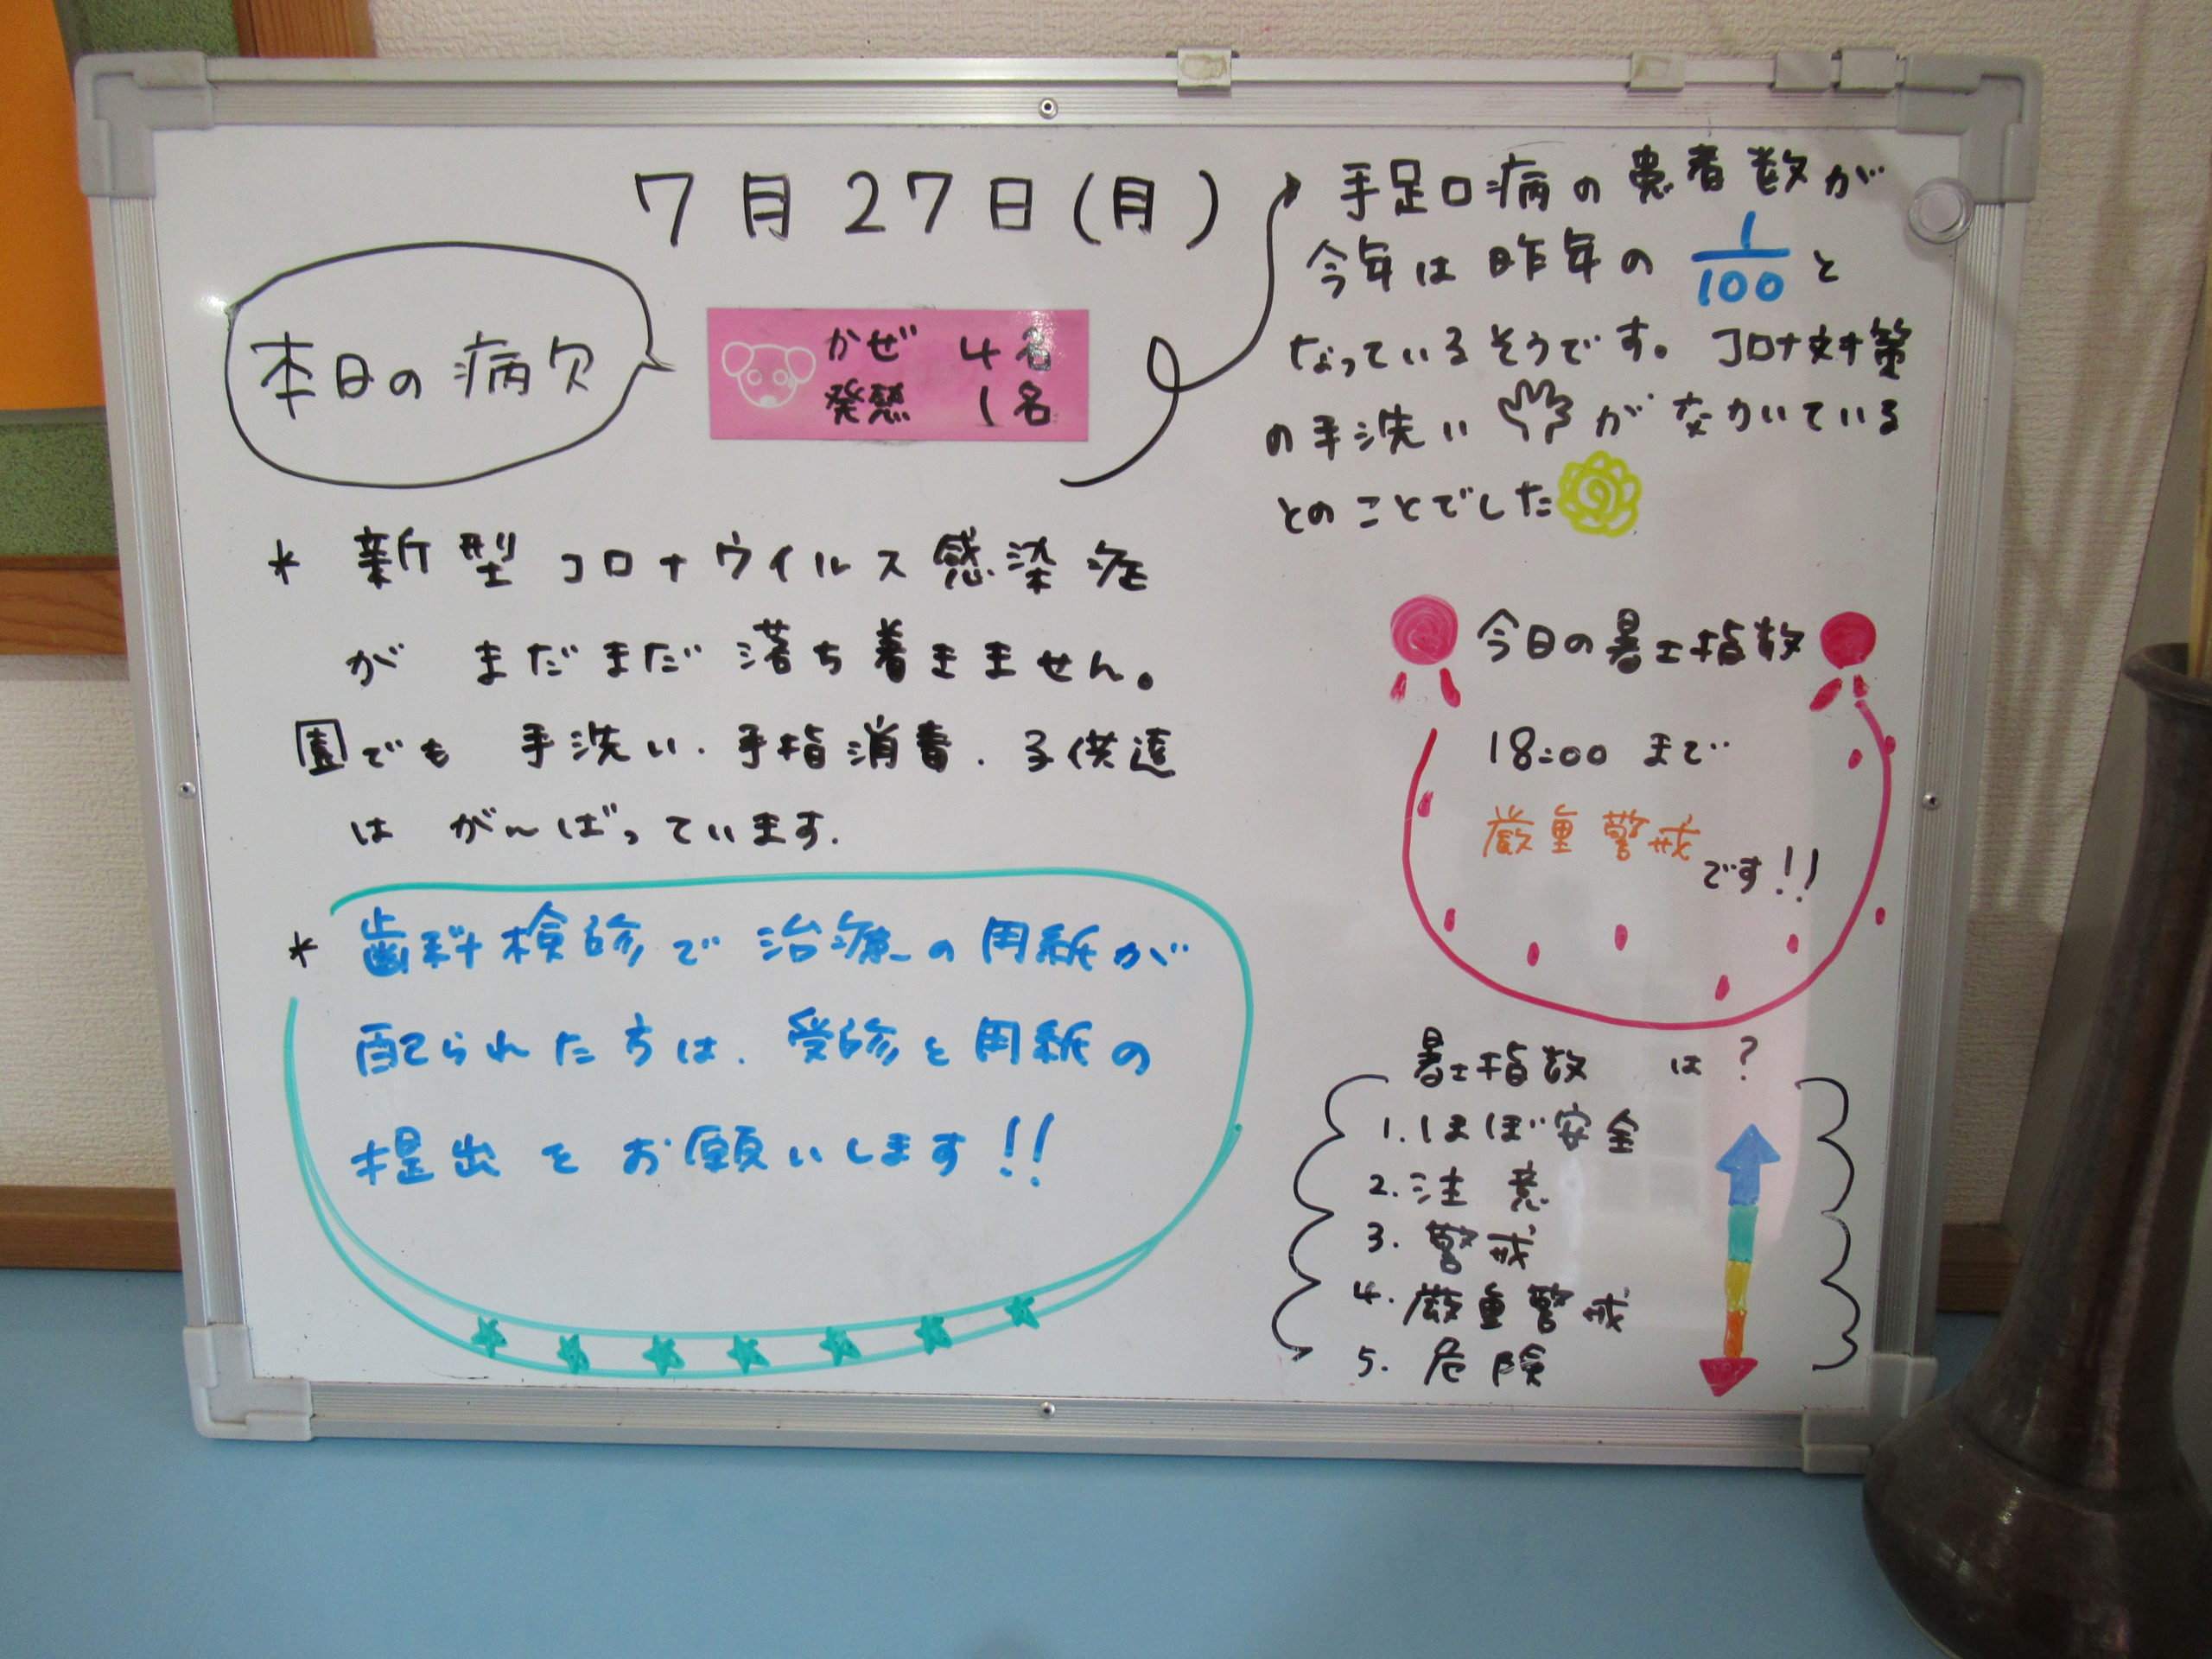 7月27日(月)
本日の病欠
かぜ 4名
発熱 1名
* 新型コロナウイルス感染症
が まだまだ落ち着きません。
園でも 手洗い.手指消毒.子供達
は がんばっています.
* 歯科検診で治療の用紙が
配られた方は.受診と用紙の
提出をお願いします!!
手足口病の患者数が
今年は昨年の 1/100 と
なっているそうです。コロナ対策
の手洗い が 効いている
とのことでした
今日の暑さ指数
18:00 まで
厳重警戒です!!
暑さ指数 は?
1.ほぼ安全
2.注意
3.警戒
4.厳重警戒
5.危険